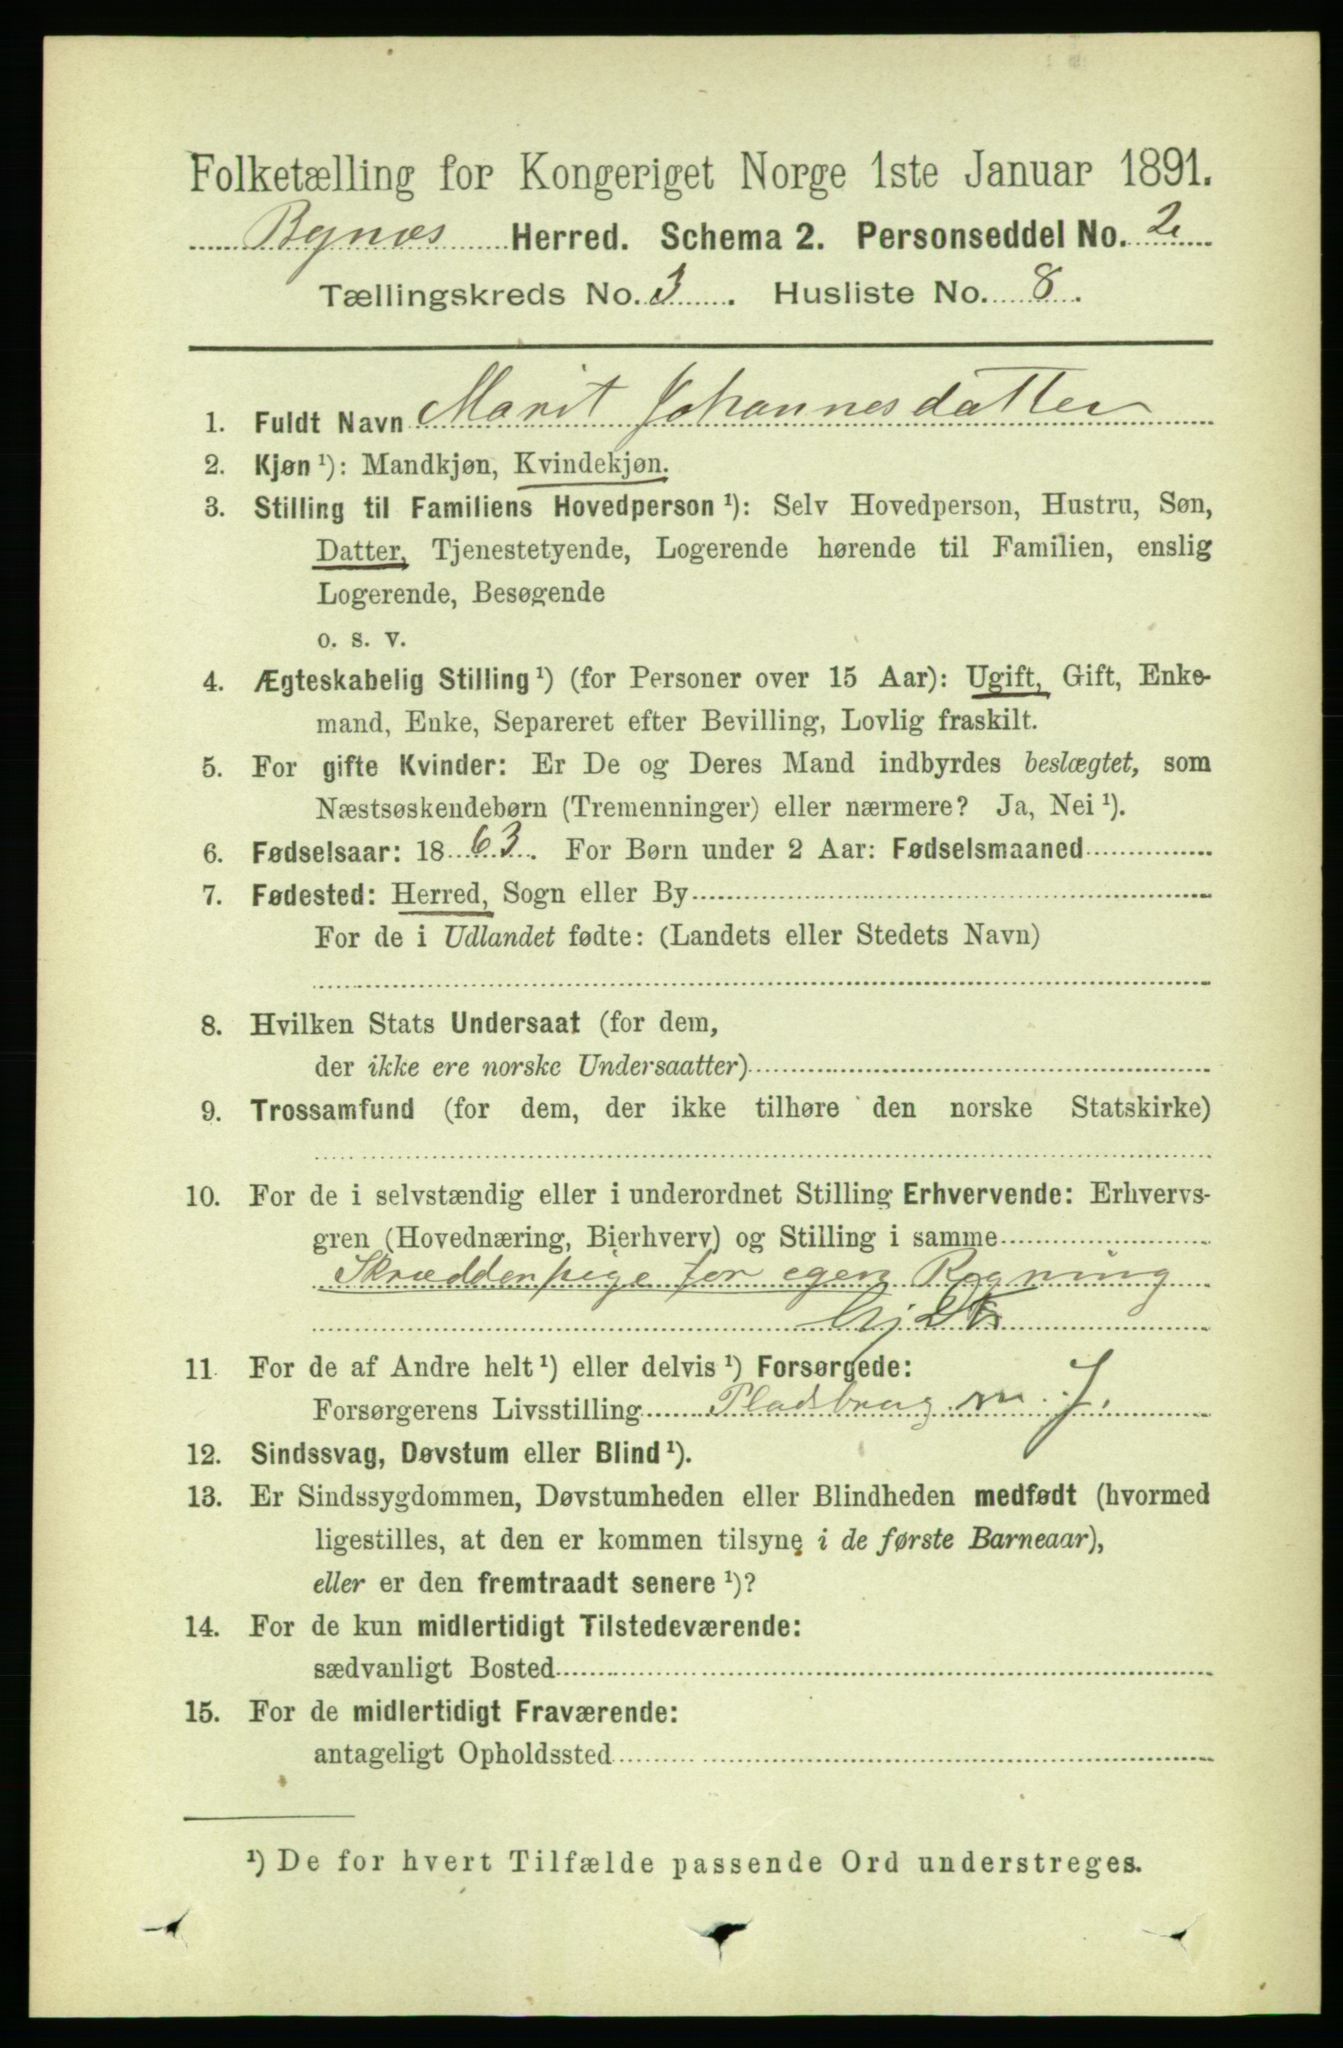 Folketælling for Kongeriget Norge 1ste Januar 1891.
Bynæs Herred. Schema 2. Personseddel No. 2
Tællingskreds No. 3. Husliste No. 8.
1. Fuldt Navn Marit Johannesdatter
2. Kjøn ¹): Mandkjøn, Kvindekjøn.
3. Stilling til Familiens Hovedperson ¹): Selv Hovedperson, Hustru, Søn,
Datter, Tjenestetyende, Logerende hørende til Familien, enslig
Logerende, Besøgende
o. s. v.
4. Ægteskabelig Stilling ¹) (for Personer over 15 Aar): Ugift, Gift, Enke-
mand, Enke, Separeret efter Bevilling, Lovlig fraskilt.
5. For gifte Kvinder: Er De og Deres Mand indbyrdes beslægtet, som
Næstsøskendebørn (Tremenninger) eller nærmere? Ja, Nei ¹).
6. Fødselsaar: 1863. For Børn under 2 Aar: Fødselsmaaned
7. Fødested: Herred, Sogn eller By
For de i Udlandet fødte: (Landets eller Stedets Navn)
8. Hvilken Stats Undersaat (for dem,
der ikke ere norske Undersaatter)
9. Trossamfund (for dem, der ikke tilhøre den norske Statskirke)
10. For de i selvstændig eller i underordnet Stilling Erhvervende: Erhvervs-
gren (Hovednæring, Bierhverv) og Stilling i samme
Skrædderpige for egen Regning
11. For de af Andre helt ¹) eller delvis ¹) Forsørgede:
Forsørgerens Livsstilling Pladsbrug m. J.
12. Sindssvag, Døvstum eller Blind ¹).
13. Er Sindssygdommen, Døvstumheden eller Blindheden medfødt (hvormed
ligestilles, at den er kommen tilsyne i de første Barneaar),
eller er den fremtraadt senere ¹)?
14. For de kun midlertidigt Tilstedeværende:
sædvanligt Bosted
15. For de midlertidigt Fraværende:
antageligt Opholdssted
¹) De for hvert Tilfælde passende Ord understreges.